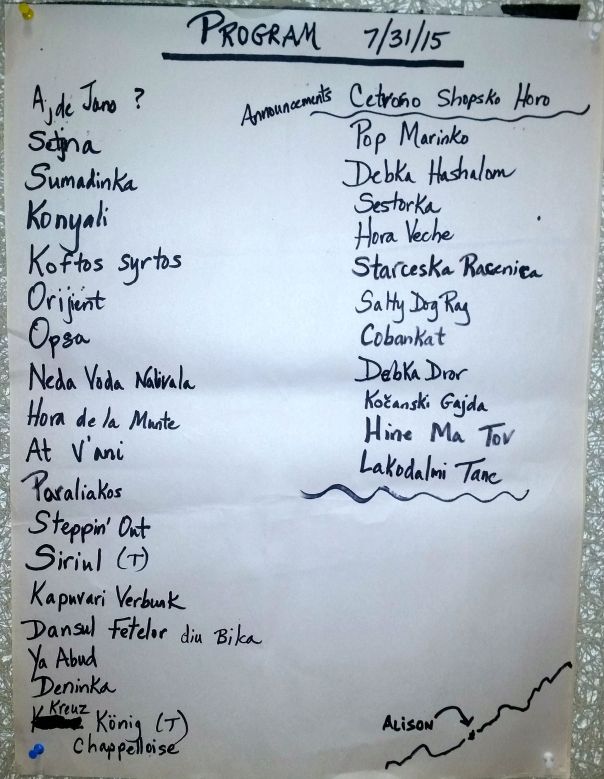 PROGRAM 7/31/15
Ajde Jano ?
Setnja
Sumadinka
Konyali
Koftos Syrtos
Orijent
Opsa
Neda Voda Nalivala
Hora de la Munte
At V'ani
Paraliakos
Steppin' Out
Siriul (T)
Kapuvari Verbunk
Dansul Fetelor din Bika
Ya Abud
Deninka
Kreuz König (T)
Chappelloise
Announcements Cetvorno Shopsko Horo
Pop Marinko
Debka Hashalom
Sestorka
Hora Veche
Starceska Racenica
Salty Dog Rag
Cobankat
Debka Dror
Kočanski Gajda
Hine Ma Tov
Lakodalmi Tanc
ALISON